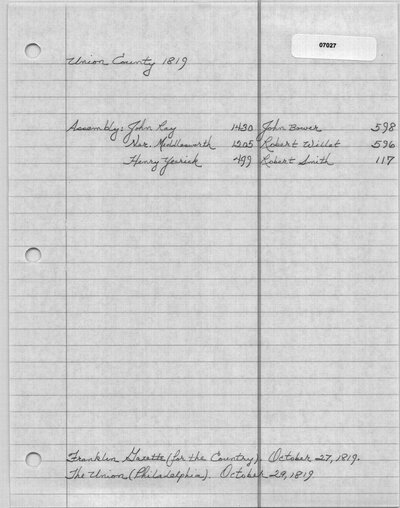 07027
Union County 1819
Assembly: John Ray 1430 John Bower 598
Ner. Middleswarth 1205 Robert Willet 596
Henry Yearick 499 Robert Smith 117
Franklin Gazette (for the Country). October 27, 1819.
The Union (Philadelphia). October 29, 1819